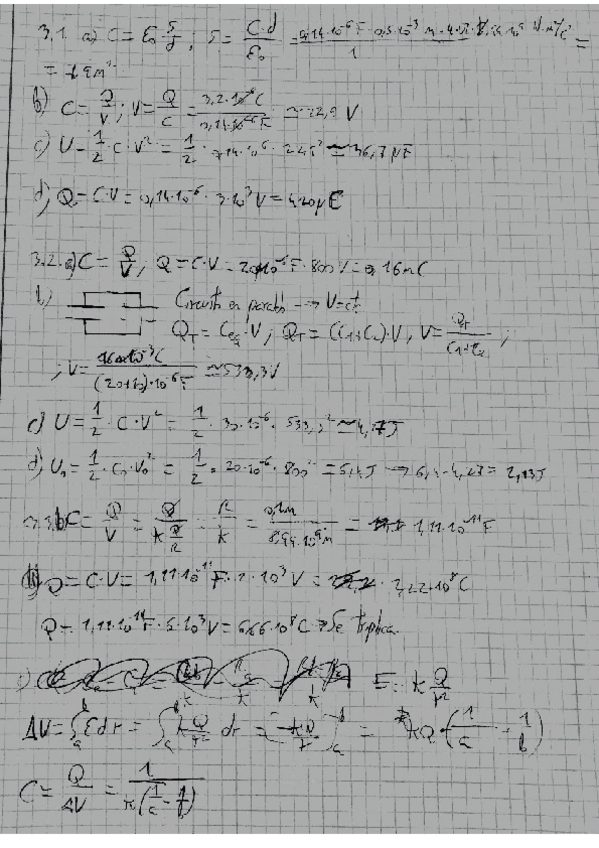 3.1 a) C = ε₀ S/d ; S = C·d/ε₀ =
b) C = Q/V ; V = Q/C = 3,2·10⁻⁶C / 0,14·10⁻⁶F ≃ 22,9 V
c) U = 1/2 · C · V² = 1/2 ·
d) Q = C·V = 0,14·10⁻⁶ · 3·10³V = 420μC
3.2. a) C = Q/V ; Q = C·V = 20·10⁻⁶F · 800V =
b) Circuito en → V = cte
Q_T = C_eq · V ; Q_T = (C₁+C₂)·V , V = Q_T/(C₁+C₂) ;
; V = 16·10⁻³C / (20+10)·10⁻⁶F ≃ 533,3V
c) U = 1/2 · C · V² = 1/2 · 30·10⁻⁶ · 533,3² ≃ 4,27J
d) U₀ = 1/2 · C₀ · V₀² = 1/2 · 20·10⁻⁶ · 800² = 6,4J → 6,4 - 4,27 = 2,13J
C = Q/V = Q/(k Q/R) = R/k = 0,1m / 8,99·10⁹m = 1,11·10⁻¹¹F
Q = C·V = 1,11·10⁻¹¹F · 2·10³V = 2,22·10⁻⁸C
Q = 1,11·10⁻¹¹F · 6·10³V = 6,66·10⁻⁸C → Se triplica.
E = k Q/r²
ΔV = ∫ₐᵇ E dr = ∫ₐᵇ kQ/r² dr = [-kQ/r]ₐᵇ = kQ·(1/a - 1/b)
C = Q/ΔV = 1/(k(1/a - 1/b))